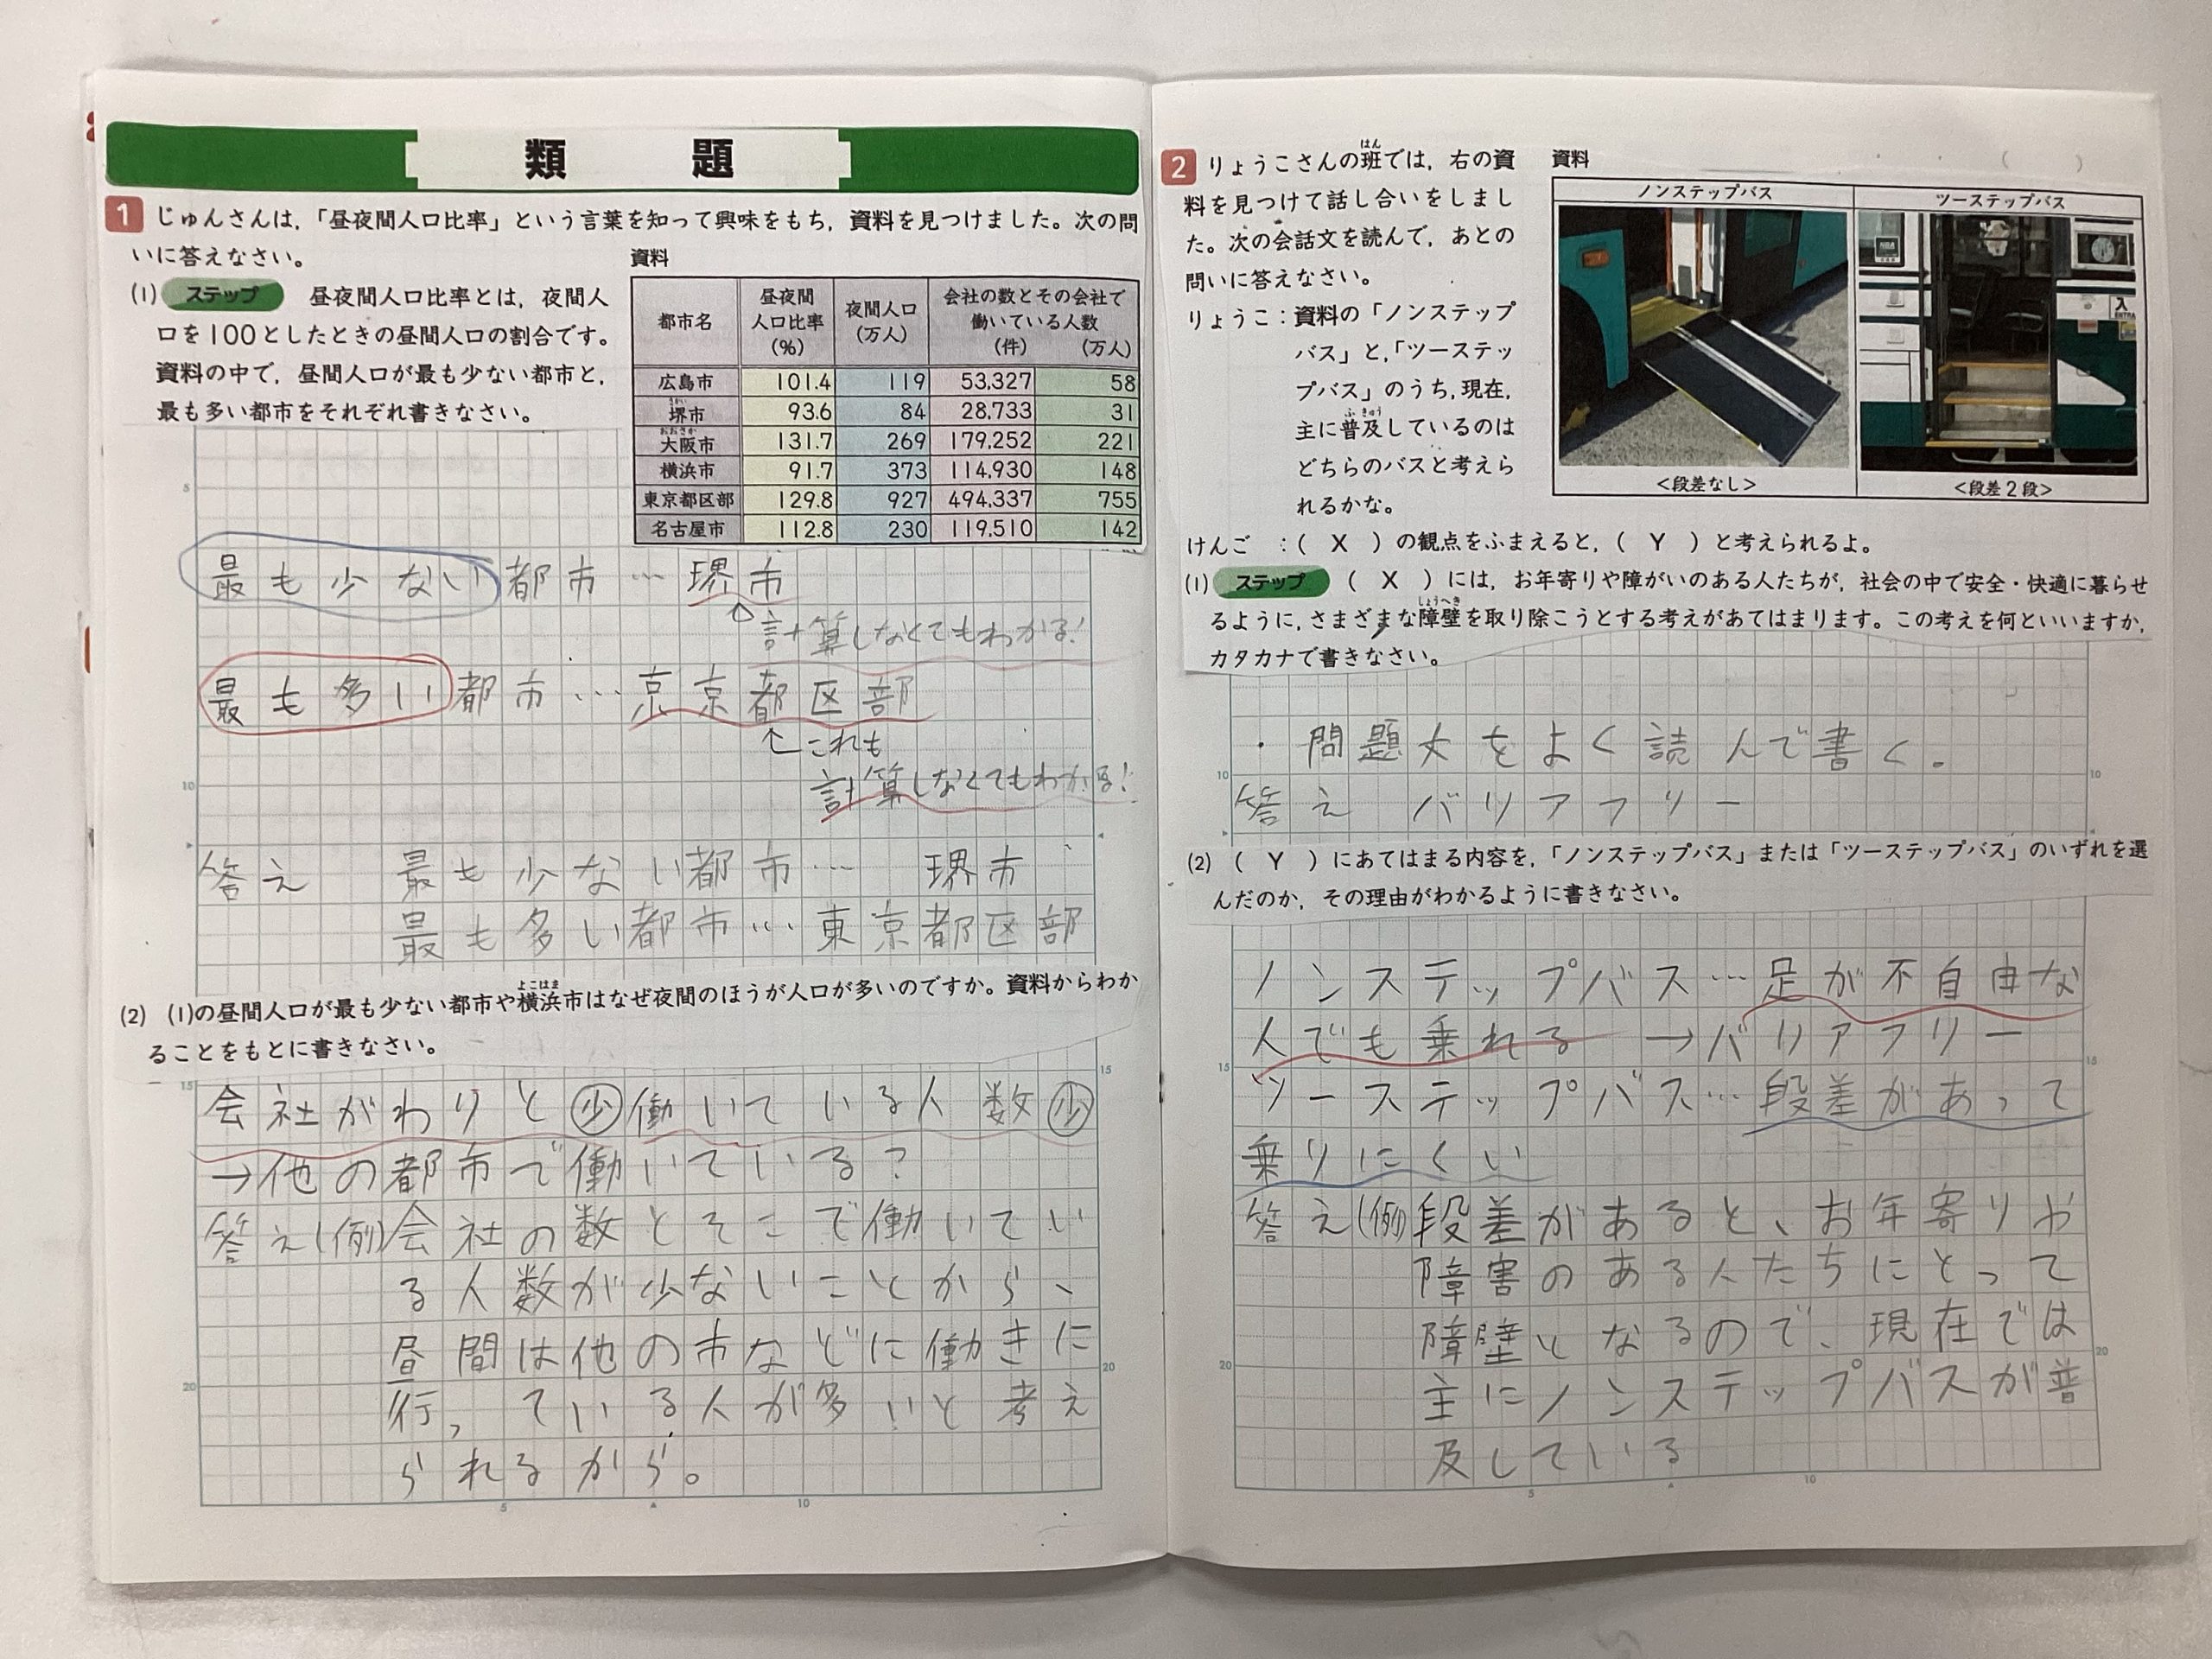 類題
1 じゅんさんは，「昼夜間人口比率」という言葉を知って興味をもち，資料を見つけました。次の問
いに答えなさい。
(1) ステップ 昼夜間人口比率とは，夜間人
口を100としたときの昼間人口の割合です。
資料の中で，昼間人口が最も少ない都市と，
最も多い都市をそれぞれ書きなさい。
資料
都市名 昼夜間人口比率(%) 夜間人口(万人) 会社の数とその会社で働いている人数 (件) (万人)
広島市 101.4 119 53,327 58
堺市 93.6 84 28,733 31
大阪市 131.7 269 179,252 221
横浜市 91.7 373 114,930 148
東京都区部 129.8 927 494,337 755
名古屋市 112.8 230 119,510 142
最も少ない都市…堺市
計算しなくてもわかる!
最も多い都市…京京都区部
これも
計算しなくてもわかる!
答え 最も少ない都市… 堺市
最も多い都市…東京都区部
(2) (1)の昼間人口が最も少ない都市や横浜市はなぜ夜間のほうが人口が多いのですか。資料からわか
ることをもとに書きなさい。
会社がわりと少働いている人数少
→他の都市で働いている?
答え(例)会社の数とそこで働いてい
る人数が少ないことから、
昼間は他の市などに働きに
行っている人が多いと考え
られるから。
2 りょうこさんの班では，右の資
料を見つけて話し合いをしまし
た。次の会話文を読んで，あとの
問いに答えなさい。
りょうこ：資料の「ノンステップ
バス」と，「ツーステッ
プバス」のうち，現在，
主に普及しているのは
どちらのバスと考えら
れるかな。
資料
ノンステップバス ツーステップバス
<段差なし> <段差2段>
けんご ：( X )の観点をふまえると，( Y )と考えられるよ。
(1) ステップ ( X )には，お年寄りや障がいのある人たちが，社会の中で安全・快適に暮らせ
るように，さまざまな障壁を取り除こうとする考えがあてはまります。この考えを何といいますか，
カタカナで書きなさい。
・問題文をよく読んで書く。
答え バリアフリー
(2) ( Y )にあてはまる内容を，「ノンステップバス」または「ツーステップバス」のいずれを選
んだのか，その理由がわかるように書きなさい。
ノンステップバス…足が不自由な
人でも乗れる →バリアフリー
ツーステップバス…段差があって
乗りにくい
答え(例)段差があると、お年寄りや
障害のある人たちにとって
障壁となるので、現在では
主にノンステップバスが普
及している